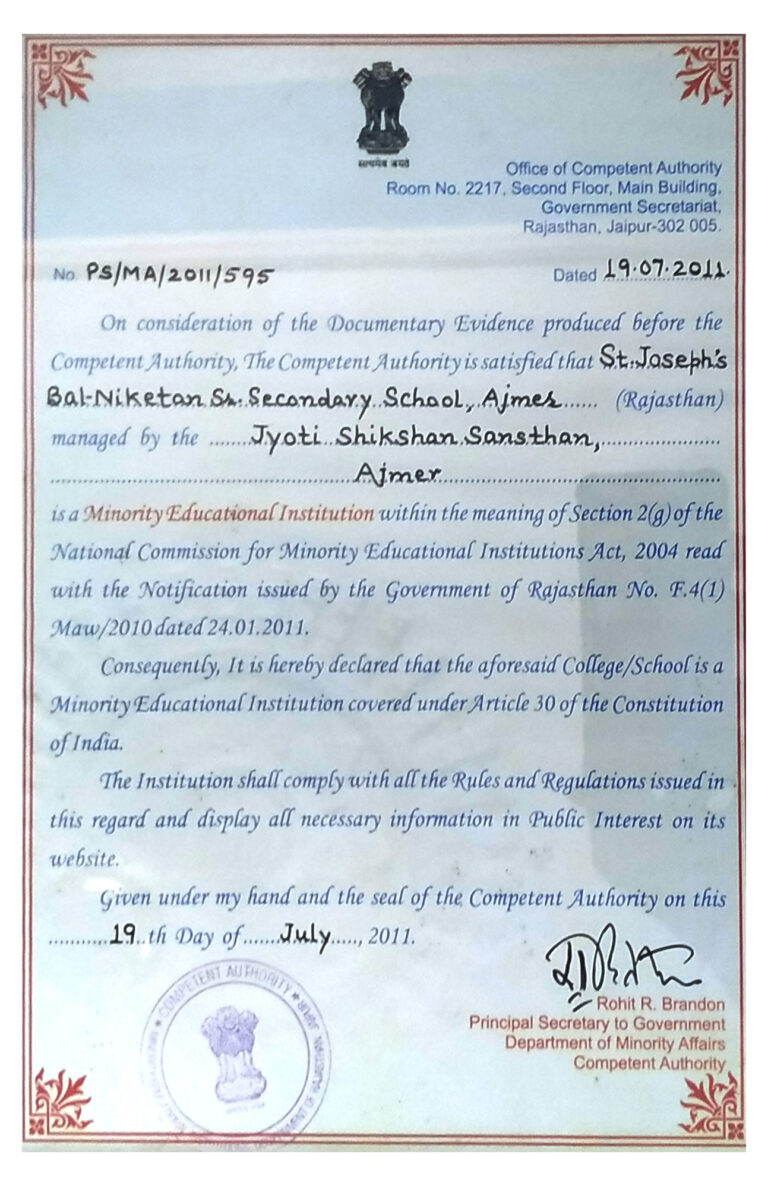 सत्यमेव जयते
Office of Competent Authority
Room No. 2217, Second Floor, Main Building,
Government Secretariat,
Rajasthan, Jaipur-302 005.
No. PS/MA/2011/595
Dated 19.07.2011.
On consideration of the Documentary Evidence produced before the
Competent Authority, The Competent Authority is satisfied that St. Joseph's
Bal-Niketan Sr. Secondary School, Ajmer...... (Rajasthan)
managed by the .......Jyoti Shikshan Sansthan,......................
....................Ajmer....................
is a Minority Educational Institution within the meaning of Section 2(g) of the
National Commission for Minority Educational Institutions Act, 2004 read
with the Notification issued by the Government of Rajasthan No. F.4(1)
Maw/2010 dated 24.01.2011.
Consequently, It is hereby declared that the aforesaid College/School is a
Minority Educational Institution covered under Article 30 of the Constitution
of India.
The Institution shall comply with all the Rules and Regulations issued in
this regard and display all necessary information in Public Interest on its
website.
Given under my hand and the seal of the Competent Authority on this
...........19..th Day of.......July....., 2011.
Rohit R. Brandon
Principal Secretary to Government
Department of Minority Affairs
Competent Authority
COMPETENT AUTHORITY